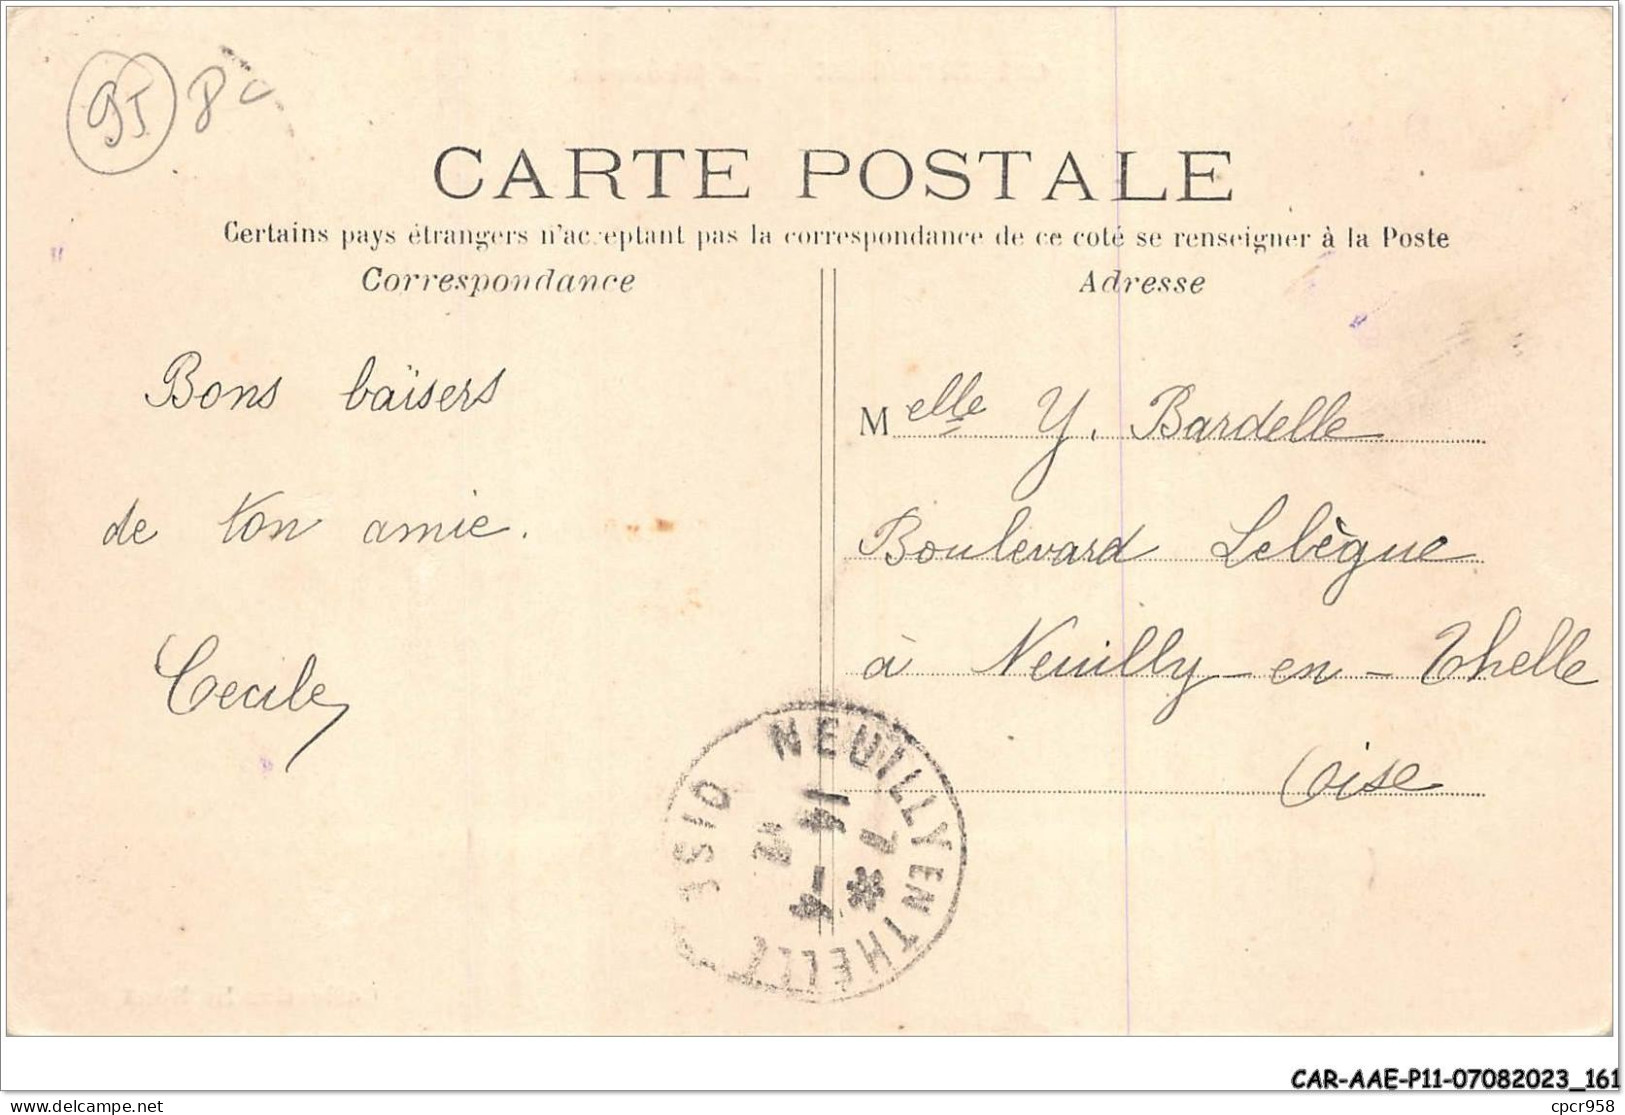 95 8
CARTE POSTALE
Certains pays étrangers n'acceptant pas la correspondance de ce coté se renseigner à la Poste
Correspondance
Adresse
Bons baïsers
de ton amie.
Cecile
Melle Y. Bardelle
Boulevard Lebègue
à Neuilly-en-Thelle
Oise
NEUILLY EN THELLE
OISE
7
14 -4
CAR-AAE-P11-07082023_161
delcampe.net
cpcr958